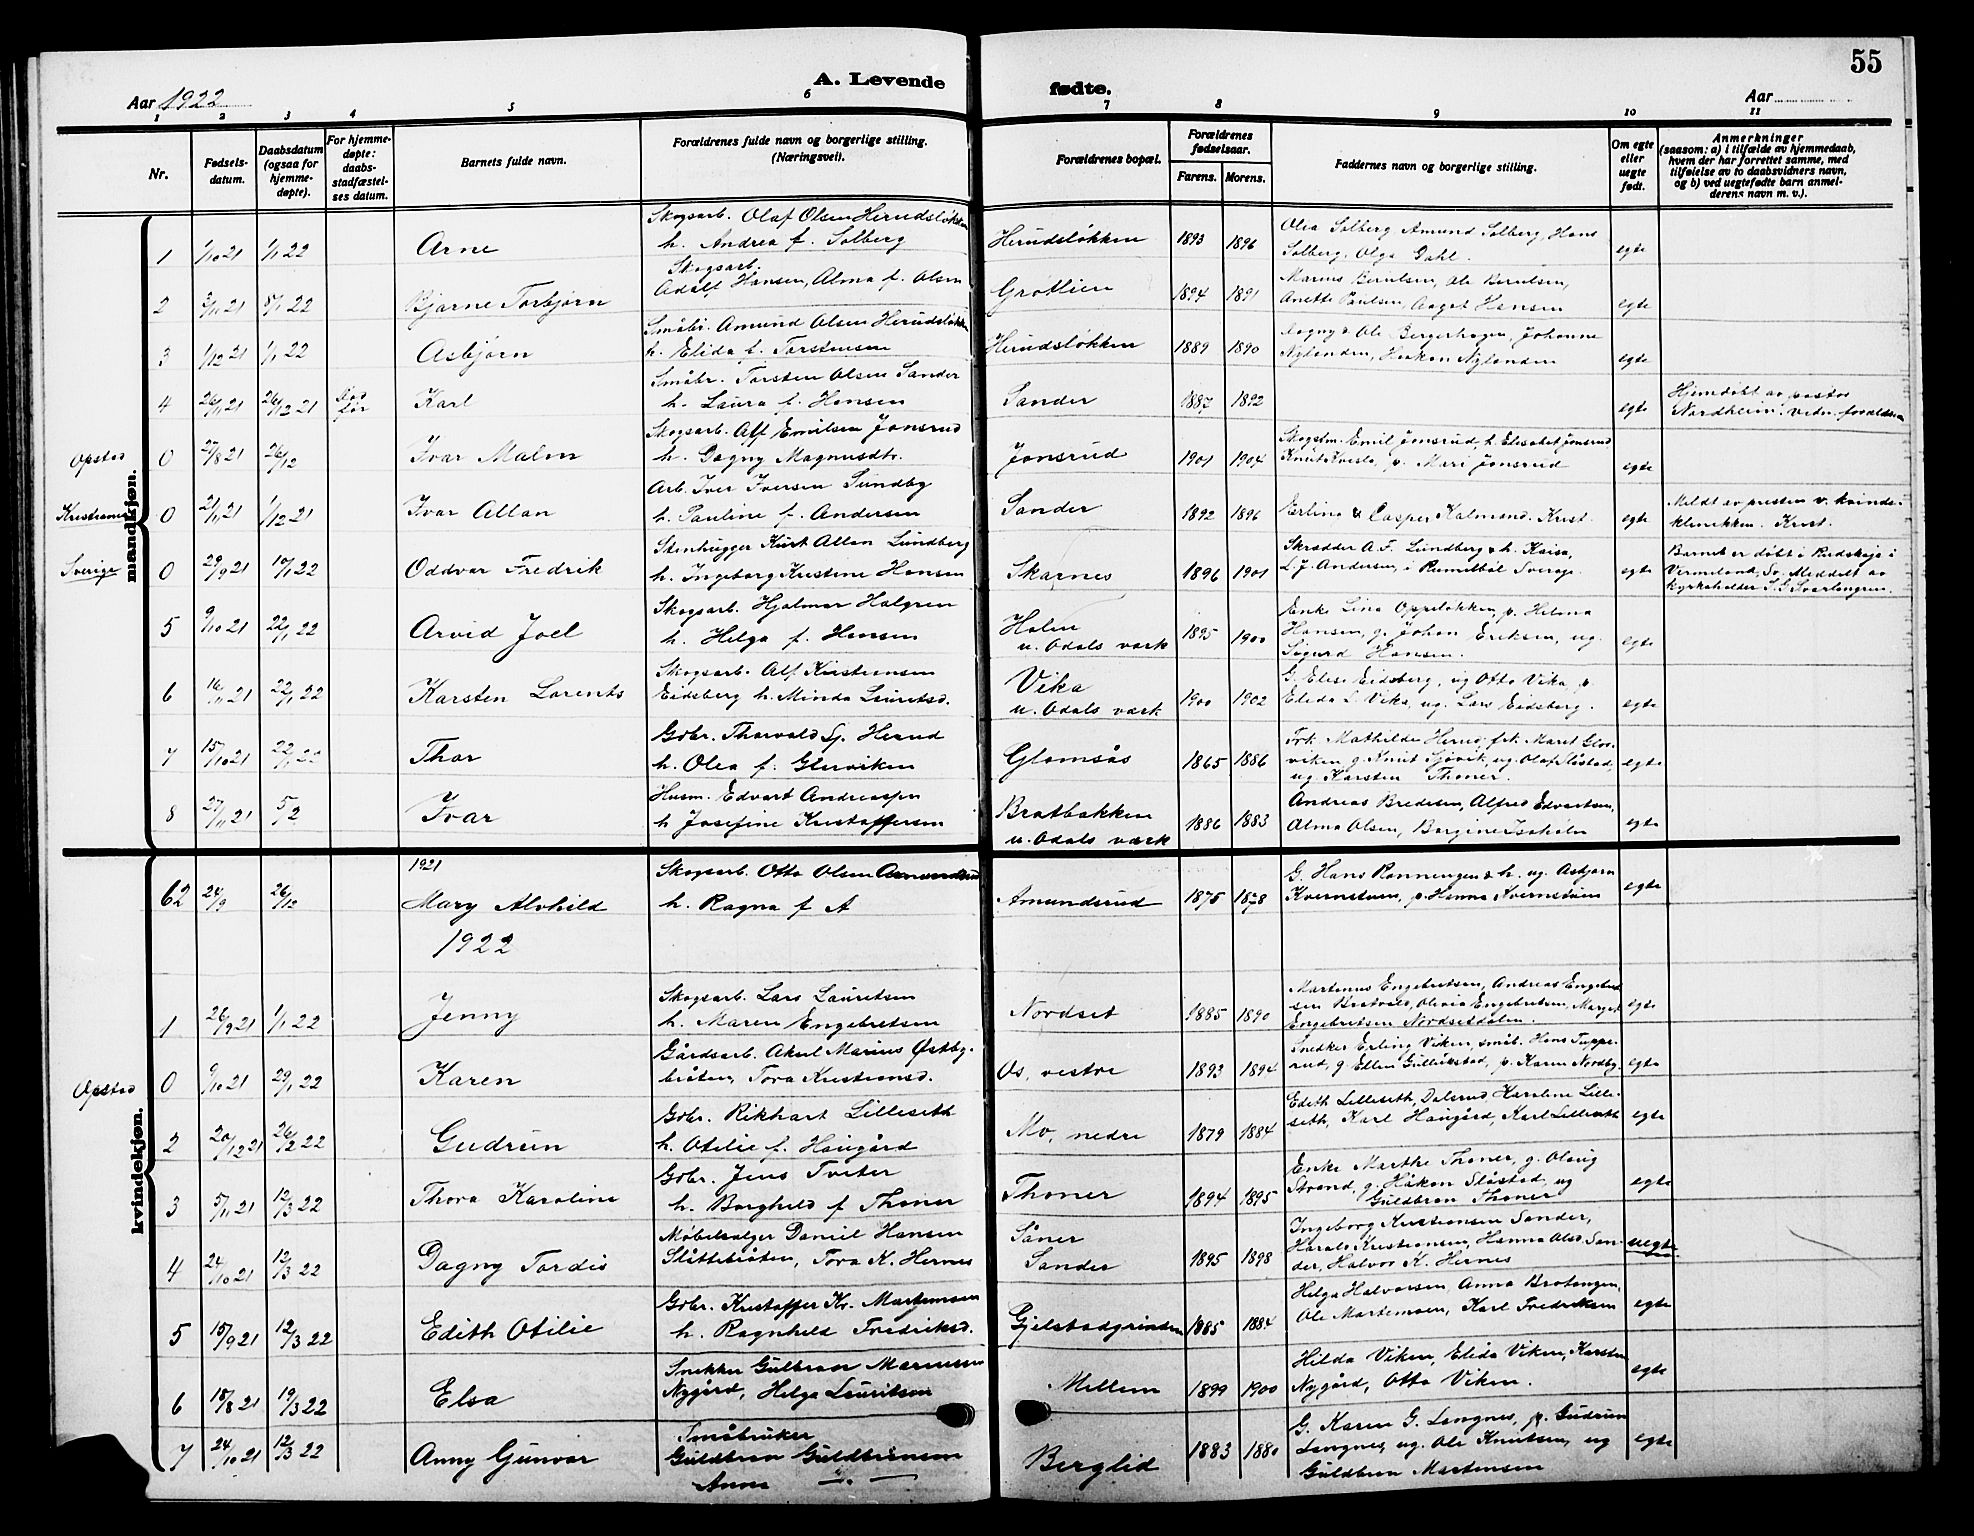 55
Aar 1922
A. Levende fødte.
Aar
1 2 3 4 5 6 7 8 9 10 11
Nr.
Fødsels-
datum.
Daabsdatum
(ogsaa for
hjemme-
døpte).
For hjemme-
døpte:
daabs-
stadfæstel-
ses datum.
Barnets fulde navn.
Forældrenes fulde navn og borgerlige stilling.
(Næringsvei).
Forældrenes bopæl.
Forældrenes
fødselsaar.
Farens. Morens.
Faddernes navn og borgerlige stilling.
Om egte
eller
uegte
født.
Anmerkninger
(saasom: a) i tilfælde av hjemmedaab,
hvem der har forrettet samme, med
tilføielse av to daabsvidners navn,
og b) ved uegtefødte barn anmel-
derens navn m. v.).
mandkjøn.
1 1/10 21 1/1 22 Arne
Skogsarb. Olaf Olsen Herudsløkken
h. Andrea f. Solberg
Herudsløkken 1893 1896
Olea Solberg Amund Solberg, Hans
Solberg, Olga Dahl.
egte
2 3/11 21 8/1 22 Bjarne Torbjørn
Skogsarb.
Adolf Hansen, Alma f. Olsen
Grøtlien 1894 1891
Marius Berntsen, Ole Berntsen,
Anette Paulsen, Aagot Hansen
egte
3 1/12 21 1/1 22 Asbjørn
Småbr. Amund Olsen Herudsløkken
h. Elida f. Torstensen
Herudsløkken 1889 1890
Dagny & Ole Bergerhagen, Johanne
Nylenden, Haakon Nylenden
egte
4 26/11 21 26/12 21 Karl
Småbr. Torsten Olsen Sander
h. Laura f. Hansen
Sander 1887 1892
egte
Hjemdøbt av pastor
Nordheim. vidn. forældrene
Opstad 0 27/8 21 26/12 Ivar Malm
Skogsarb. Alf Emilsen Jonsrud
h. Dagny Magnusdtr.
Jonsrud 1901 1904
Skogstm. Emil Jonsrud, h. Elisabet Jonsrud
Knut Kvesla, p. Mari Jonsrud
egte
Kristiania 0 2/11 21 1/12 21 Ivar Allan
Arb. Iver Iversen Sundby
h. Pauline f. Andersen
Sander 1892 1896
Erling & Casper Kalmand. Krist.
egte
Meldt av presten v. kvinde-
klinikken. Krist.
Sverige 0 29/9 21 10/1 22 Oddvar Fredrik
Stenhugger Kurt Allan Lundberg
h. Ingeborg Kristine Hansen
Skarnes 1896 1901
Skrædder A. F. Lundberg & h. Kaisa,
L. J. Andersen, i Rumilbøl Sverige.
egte
Barnet er døbt i Rudskoga i
Vermeland, Sv. Meddelt av
kyrkoholder S. G. Svartengren.
5 9/10 21 22/1 22 Arvid Joel
Skogsarb. Hjalmar Halgren
h. Helga f. Hansen
Holen
u. Odals værk
1895 1900
Enke Lina Oppeløkken, p. Helma
Hansen, g. Johan Eriksen, ug.
Sigurd Hansen.
egte
6 16/11 21 22/1 22 Karsten Lorents
Skogsarb. Alf Kristiansen
Eidsberg h. Minda Lauritsd.
Vika
u. Odals værk
1900 1902
G. Elise Eidsberg, ug Otto Vika, p.
Elida L. Vika, ug. Lars Eidsberg.
egte
7 15/10 21 22/1 22 Thor
Gbr. Thorvald Sj. Herud
h. Olea f. Glorviken
Glomsås 1865 1886
Frk. Mathilde Herud, frk. Marit Glor-
viken g. Knut Sjøvik, ug. Olaf Slåstad,
ug. Karsten Thoner.
egte
8 27/11 21 5/2 Ivar
Husm. Edvart Andreassen
h Josefine Kristoffersen
Bratbakken
u. Odals værk
1886 1883
Andreas Bredesen, Alfred Edvartsen,
Alma Olsen, Bergine
egte
kvindekjøn.
1921
62 24/9 26/12 Mary Alvhild
Skogsarb. Otto Olsen Amundsrud
h. Ragna f A
Amundsrud 1875 1878
G. Hans Rønningen & h. ug. Asbjørn
Kvernstuen, p. Hanna Kvernstuen
egte
1922
1 26/9 21 1/1 22 Jenny
Skogsarb. Lars Lauritsen
h. Maren Engebretsen
Nordset 1885 1890
Martenus Engebretsen, Andreas Engebret
sen Bratvold, Olivia Engebretsen, Margit
Engebretsen Nordsetdalen.
egte
Opstad 0 9/10 21 29/1 22 Karen
Gårdsarb. Aksel Marius Østby-
bråten, Tora Kristiansd.
Os, vestre 1893 1894
Snedker Erling Viken, småb. Hans Tuppe-
rud, g. Ellen Gullikstad, p. Karen Nordby
egte
2 20/12 21 26/2 22 Gudrun
Gbr. Rikhart Lilleseth
h. Otilie f. Haugård
Mo, nedre 1879 1884
Edith Lilleseth, Dalsrud Karoline Lille-
seth, Karl Haugård, Karl Lilleseth
egte
3 5/11 21 12/3 22 Thora Karoline
Gbr. Jens Tveter
h. Borghild f Thoner
Thoner 1894 1895
Enke Marthe Thoner, g. Olaug
Strand, g. Håkon Slåstad, ug
Guldbran Thoner
egte
4 24/10 21 12/3 22 Dagny Tordis
Møbelsælger Daniel Hansen
Slåttebråten, Tora K. Hernes
Såner
Sander
1895 1898
Ingeborg Kristiansen Sander,
Harald Kristiansen, Hanna Olsd. San-
der, Halvor K. Hernes
uegte
5 15/9 21 12/3 22 Edith Otilie
Gbr. Kristoffer Kr. Martensen
h. Ragnhild Fredriksd.
Gjelstadgrinden 1885 1884
Helga Halvorsen, Anna Brotangen,
Ole Martensen, Karl Fredriksen
egte
6 18/8 21 19/3 22 Elsa
Snekker Gulbran Mariusen
Nygård, Helga Lauritsen
Mellem 1899 1900
Hilda Viken, Elida Viken, Karsten
Nygård, Otto Viken.
egte
7 24/10 21 12/3 22 Anny Gunvor
Småbruker
Guldbran Guldbransen
Anna — " —
Berglid 1883 1880
G. Karen G. Langnes, p. Gudrun
Langnes, ug. Ole Knutsen, ug
Guldbran Martensen
egte